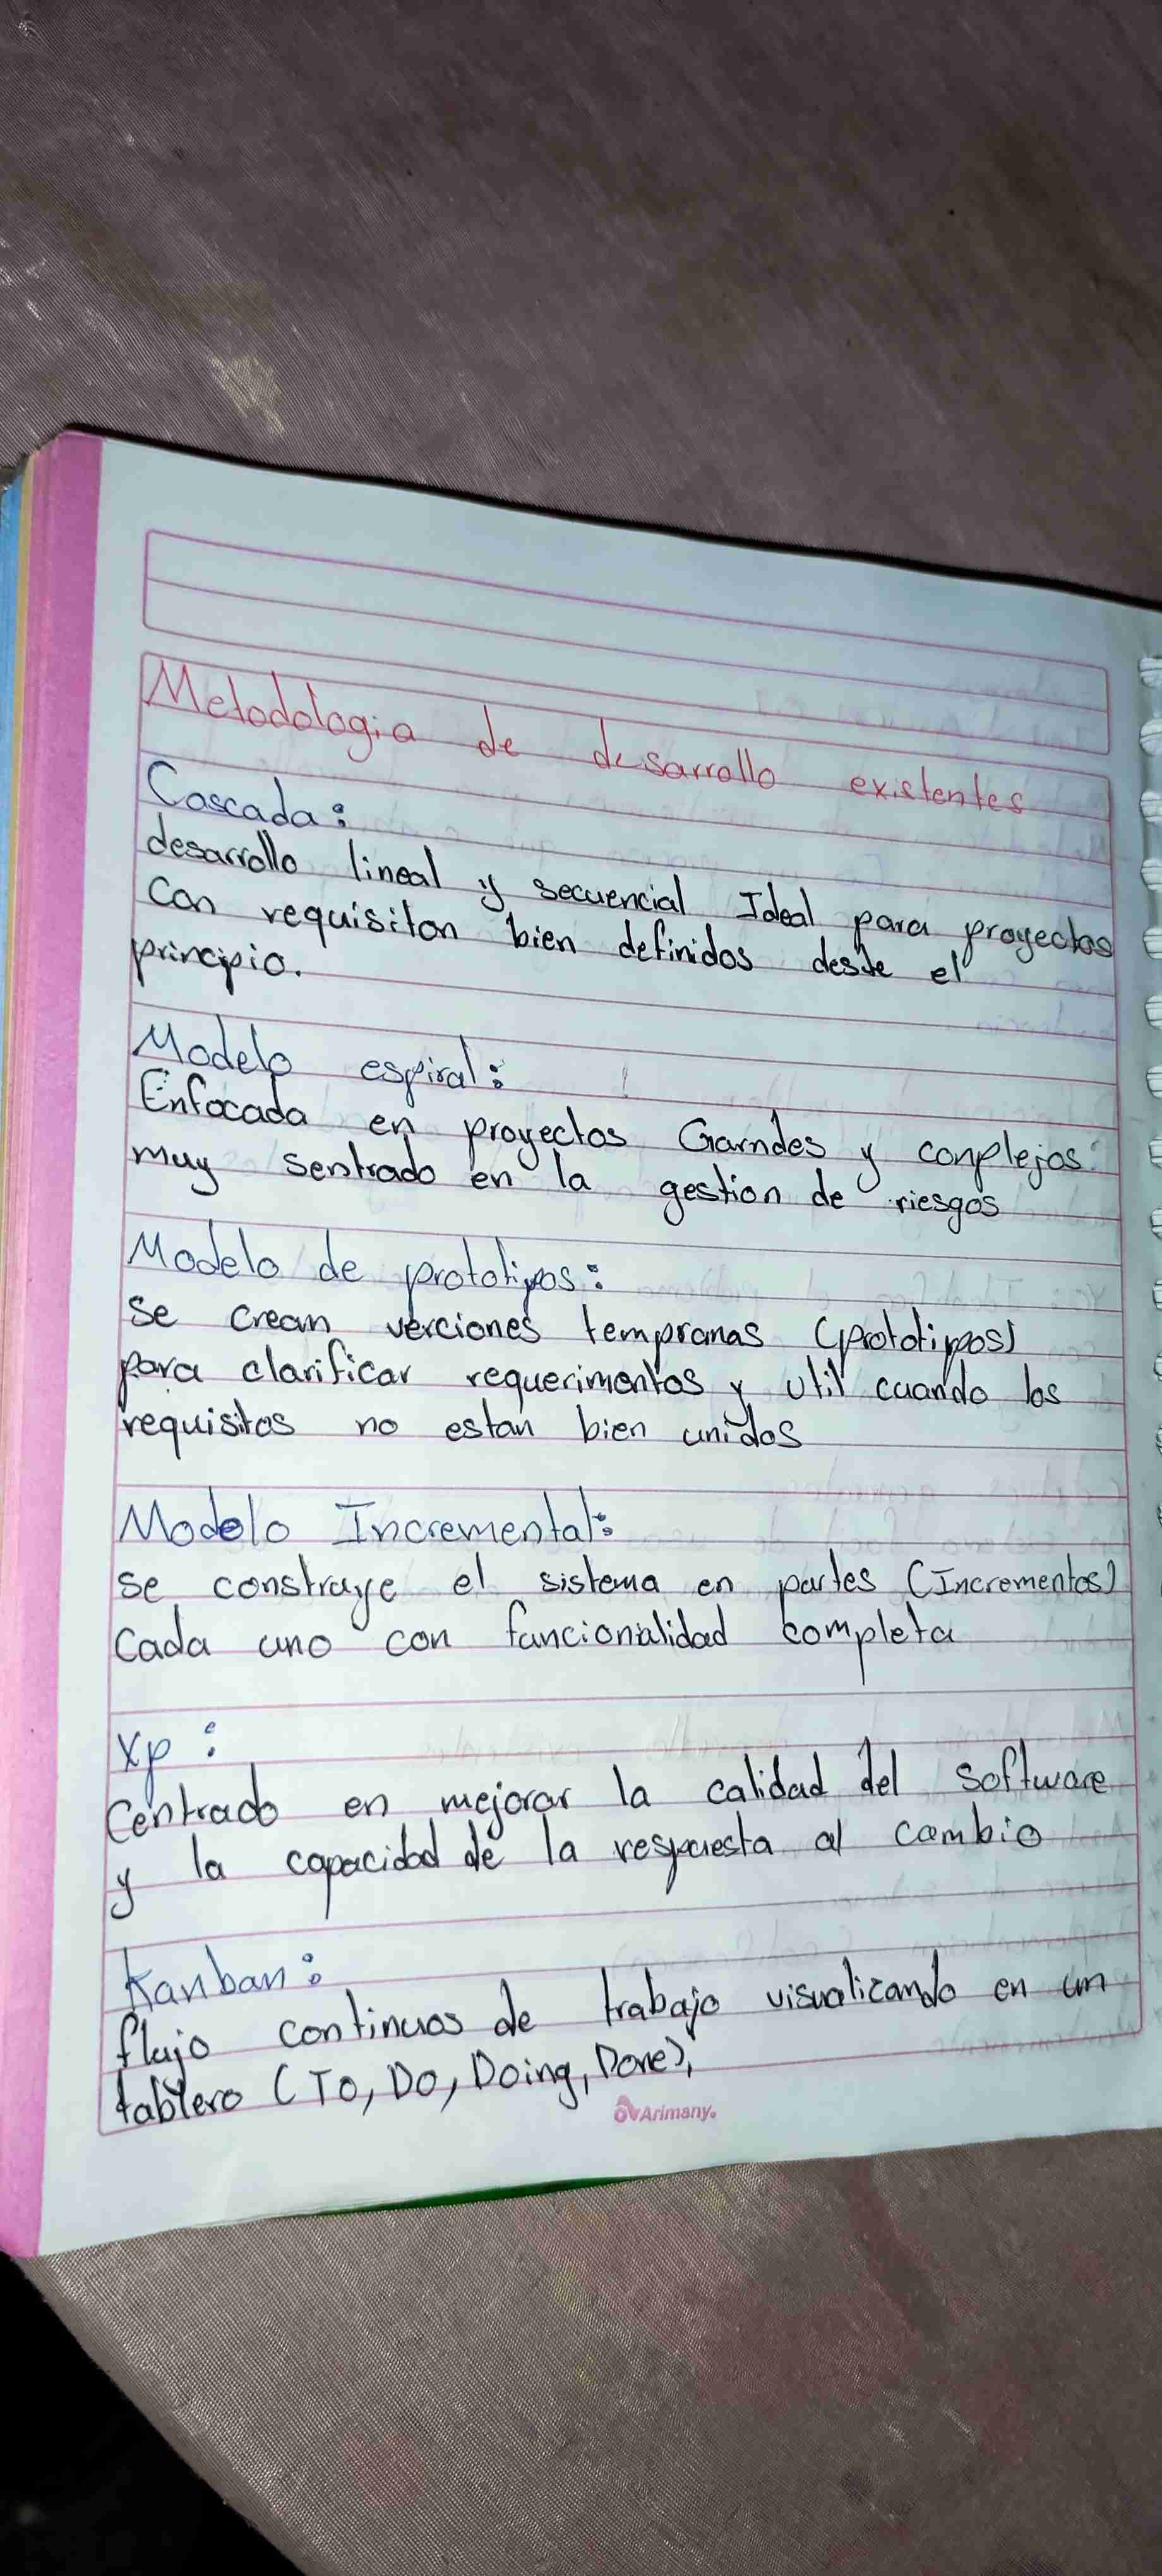 Metodologia de desarrollo existentes
Cascada:
desarrollo lineal y secuencial Ideal para proyectos
con requisiton bien definidos desde el
principio.
Modelo espiral:
Enfocada en proyectos Garndes y conplejos
muy sentrado en la gestion de riesgos
Modelo de prototipos:
se crean verciones tempranas (prototipos)
para clarificar requerimentos y util cuando los
requisitos no estan bien unidos
Modelo Incremental:
se construye el sistema en partes (Incrementos)
cada uno con funcionalidad completa
XP:
Centrado en mejorar la calidad del software
y la capacidad de la respuesta al cambio
Kanban:
flujo continuos de trabajo visualicando en un
tablero (To, Do, Doing, Done),
Arimany.